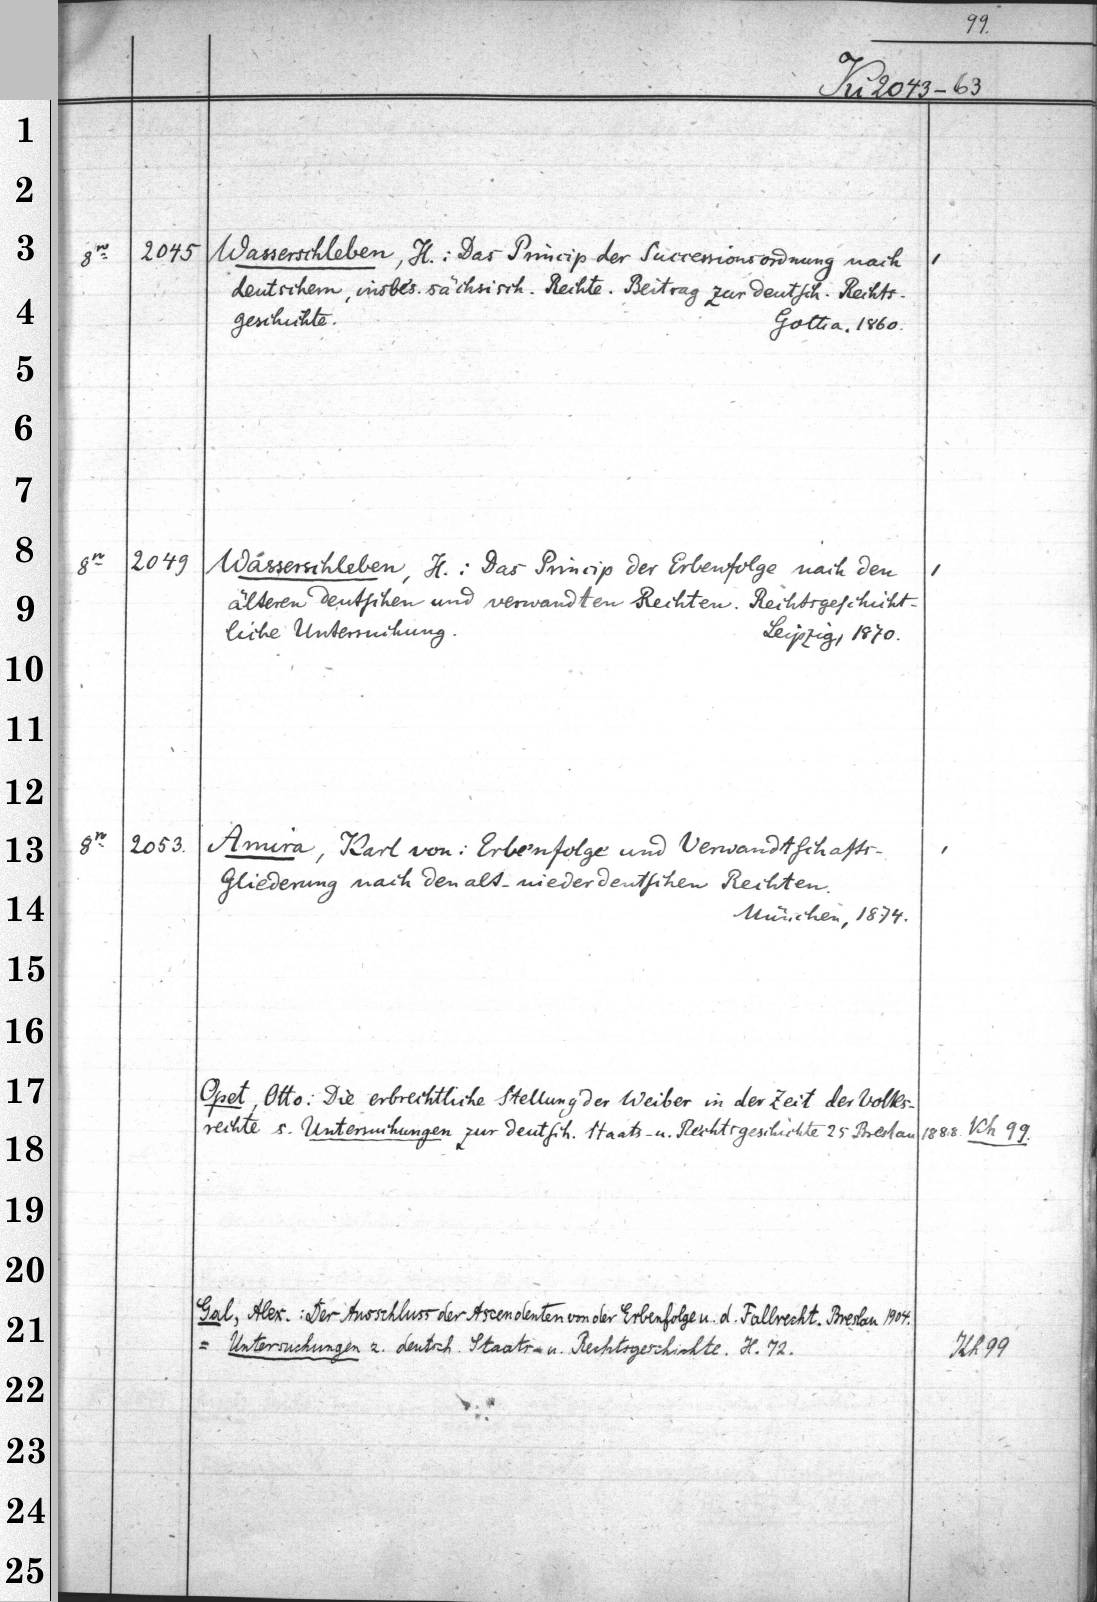 99.
Ki 2043-63
1
2
3
8º 2045 Wasserschleben, H.: Das Princip der Successionsordnung nach
deutschem, insbes. sächsisch. Rechte. Beitrag zur deutsch. Rechts-
4
geschichte. Gotha. 1860.
5
6
7
8
2049 Wasserschleben, H.: Das Princip der Erbenfolge nach den
älteren deutschen und verwandten Rechten. Rechtsgeschicht-
9
liche Untersuchung. Leipzig, 1870.
10
11
12
13
2053. Amira, Karl von: Erbenfolge und Verwandtschafts-
Gliederung nach den alt-niederdeutschen Rechten.
14
München, 1874.
15
16
17
Opet, Otto: Die erbrechtliche Stellung der Weiber in der Zeit der Volks-
rechte s. Untersuchungen zur deutsch. Staats- u. Rechtsgeschichte 25 Breslau 1888. Kh 99.
18
19
20
21
Gal, Alex.: Der Ausschluss der Ascendenten von der Erbenfolge u. d. Fallrecht. Breslau 1904.
= Untersuchungen z. deutsch. Staats- u. Rechtsgeschichte. H. 72. Kh 99
22
23
24
25